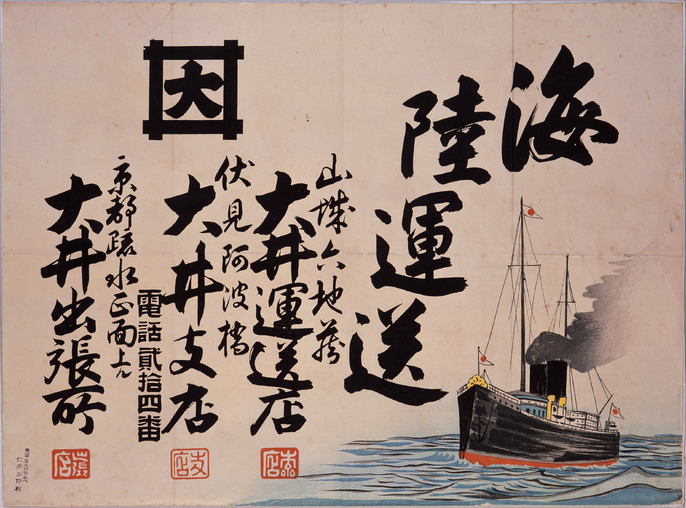 海陸運送
山城六地蔵
大井運送店
本店
伏見阿波橋
大井支店
支店
電話貳拾四番
大
京都疏水正面上ル
大井出張所
出張店